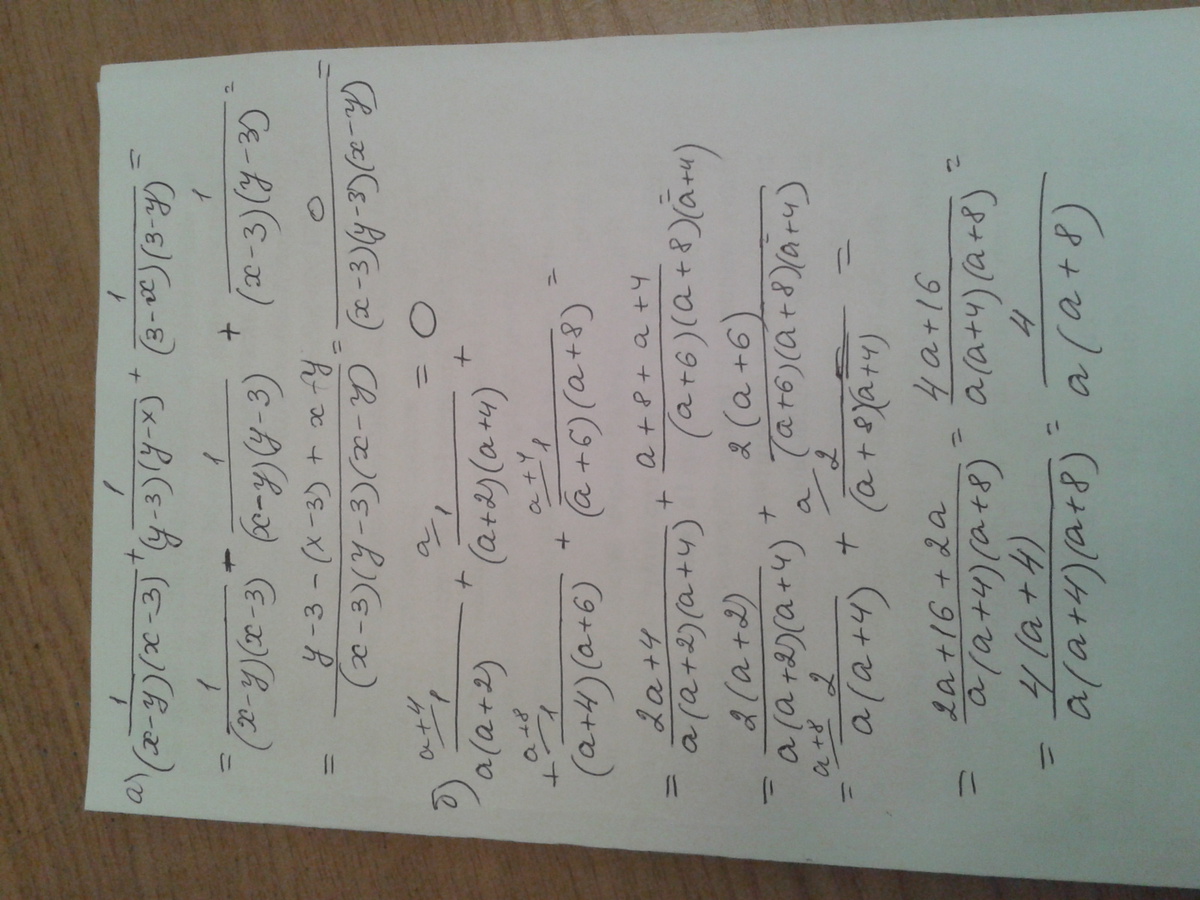 а) 1/((x-y)(x-3)) + 1/((y-3)(y-x)) + 1/((3-x)(3-y)) =
= 1/((x-y)(x-3)) - 1/((x-y)(y-3)) + 1/((x-3)(y-3)) =
= (y-3-(x-3)+x-y)/((x-3)(y-3)(x-y)) = 0/((x-3)(y-3)(x-y)) =
= 0
б) a+4 1/(a(a+2)) + a 1/((a+2)(a+4)) +
+ a+8 1/((a+4)(a+6)) + a+4 1/((a+6)(a+8)) =
= (2a+4)/(a(a+2)(a+4)) + (a+8+a+4)/((a+6)(a+8)(a+4)) =
= 2(a+2)/(a(a+2)(a+4)) + 2(a+6)/((a+6)(a+8)(a+4)) =
= a+8 2/(a(a+4)) + a 2/((a+8)(a+4)) =
= (2a+16+2a)/(a(a+4)(a+8)) = (4a+16)/(a(a+4)(a+8)) =
= 4(a+4)/(a(a+4)(a+8)) = 4/(a(a+8))